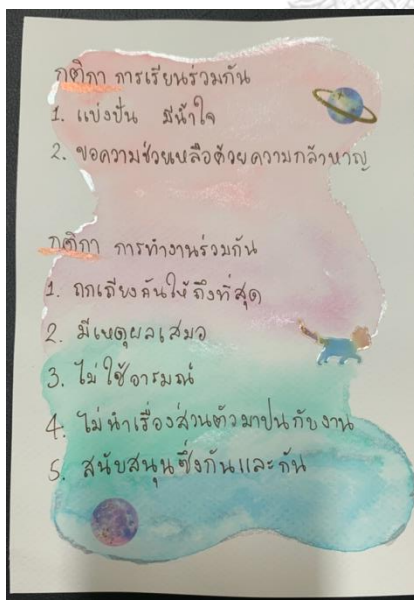 กติกา การเรียนร่วมกัน
1. แบ่งปัน มีน้ำใจ
2. ขอความช่วยเหลือด้วยความกล้าหาญ
กติกา การทำงานร่วมกัน
1. ถกเถียงกันให้ถึงที่สุด
2. มีเหตุผลเสมอ
3. ไม่ใช้อารมณ์
4. ไม่นำเรื่องส่วนตัวมาปนกับงาน
5. สนับสนุนซึ่งกันและกัน